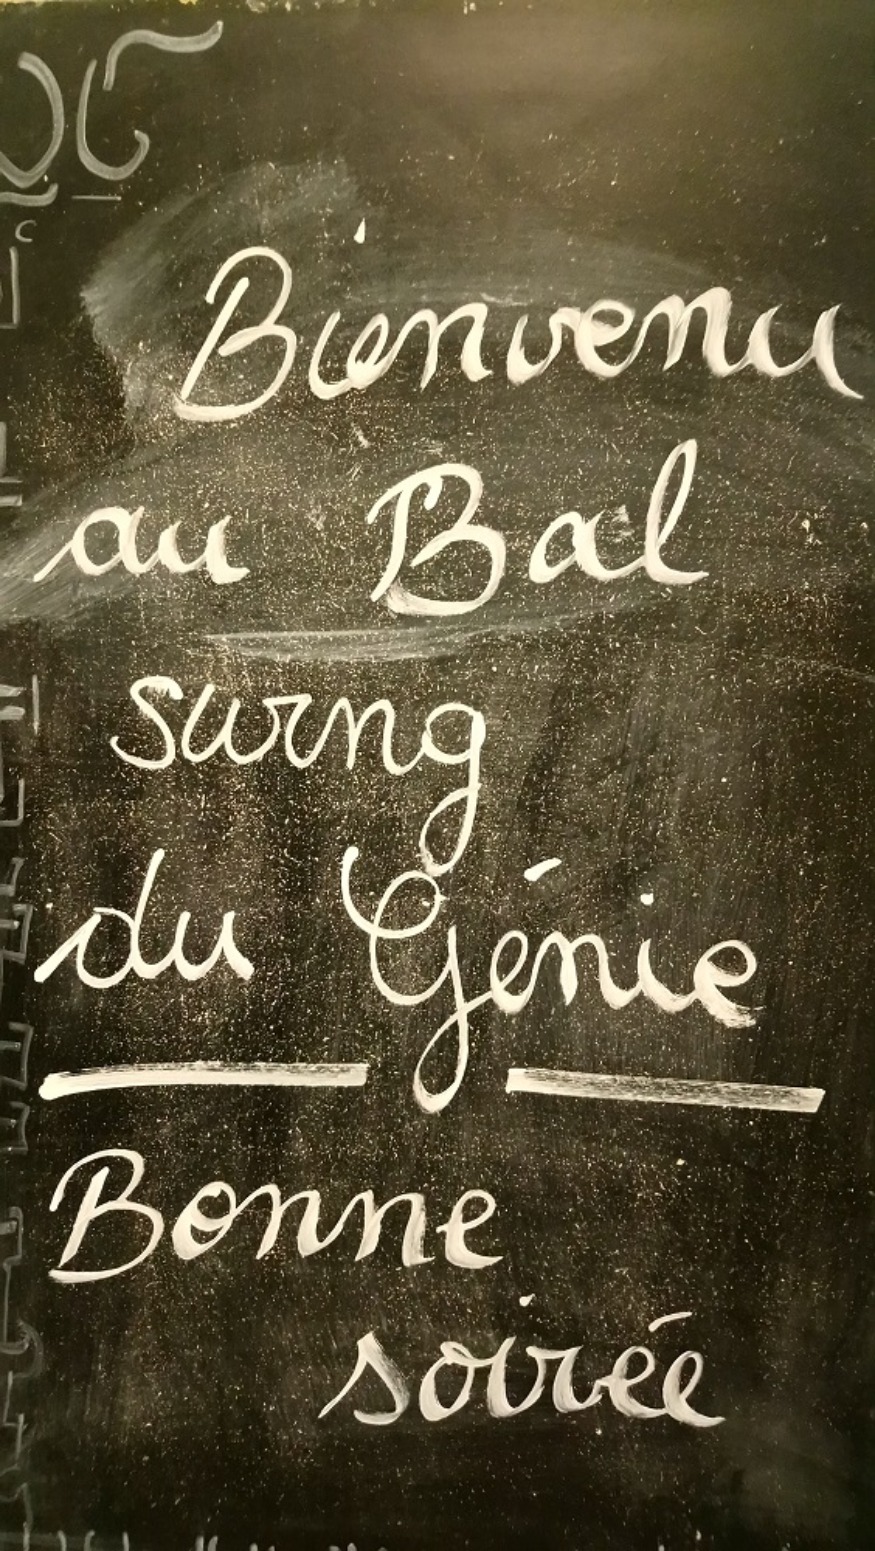 Bienvenu
au Bal
surng
du Génie
Bonne
soirée